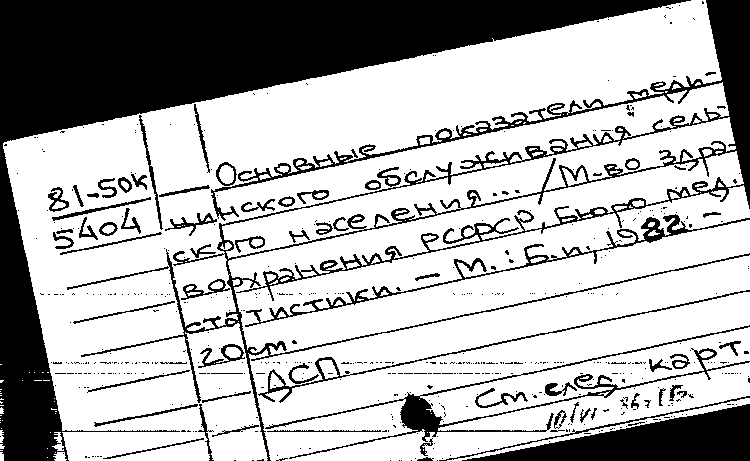 81-50к
5404
Основные показатели меди-
цинского обслуживания сель-
ского населения... / М-во здра-
воохранения РСФСР, Бюро мед.
статистики. — М. : Б.и., 1982. —
20 см.
ДСП.
См. след. карт.
10/VI-86г.